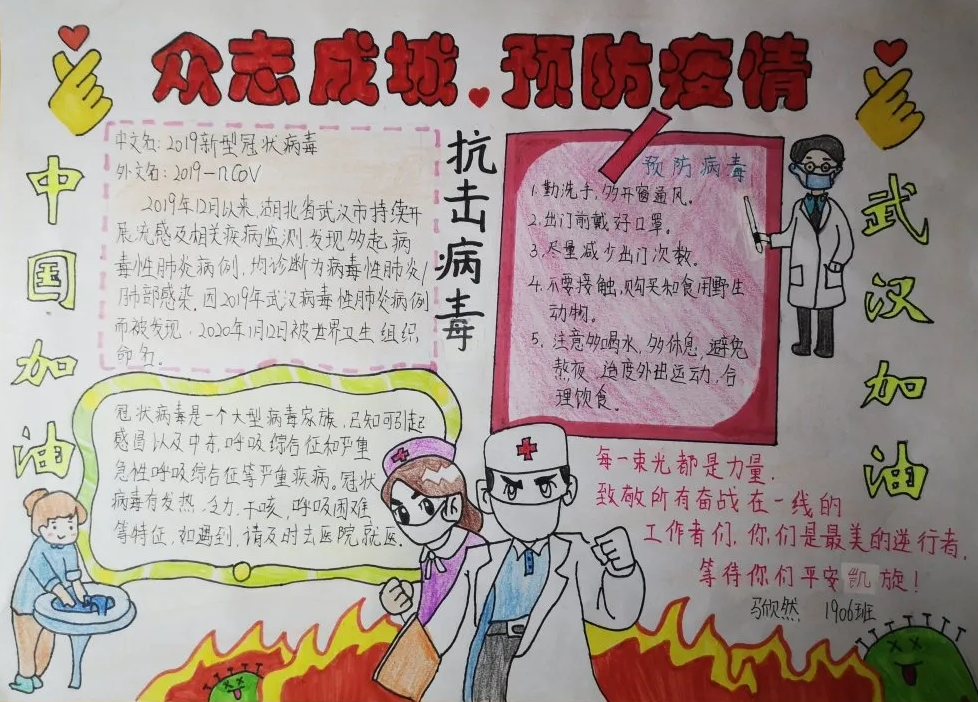 众志成城.预防疫情
中国加油
中文名:2019新型冠状病毒
外文名:2019-nCoV
2019年12月以来,湖北省武汉市持续开
展流感及相关疾病监测,发现多起病
毒性肺炎病例,均诊断为病毒性肺炎/
肺部感染.因2019年武汉病毒性肺炎病例
而被发现,2020年1月12日被世界卫生组织
命名.
抗击病毒
预防病毒
1.勤洗手,多开窗通风.
2.出门前戴好口罩.
3.尽量减少出门次数.
4.不要接触,购买和食用野生
动物.
5.注意多喝水,多休息,避免
熬夜,适度外出运动,合
理饮食.
武汉加油
冠状病毒是一个大型病毒家族,已知可引起
感冒以及中东,呼吸综合征和严重
急性呼吸综合征等严重疾病.冠状
病毒有发热,乏力,干咳,呼吸困难
等特征,如遇到,请及时去医院就医.
每一束光都是力量.
致敬所有奋战在一线的
工作者们,你们是最美的逆行者,
等待你们平安凯旋!
马欣然 1906班